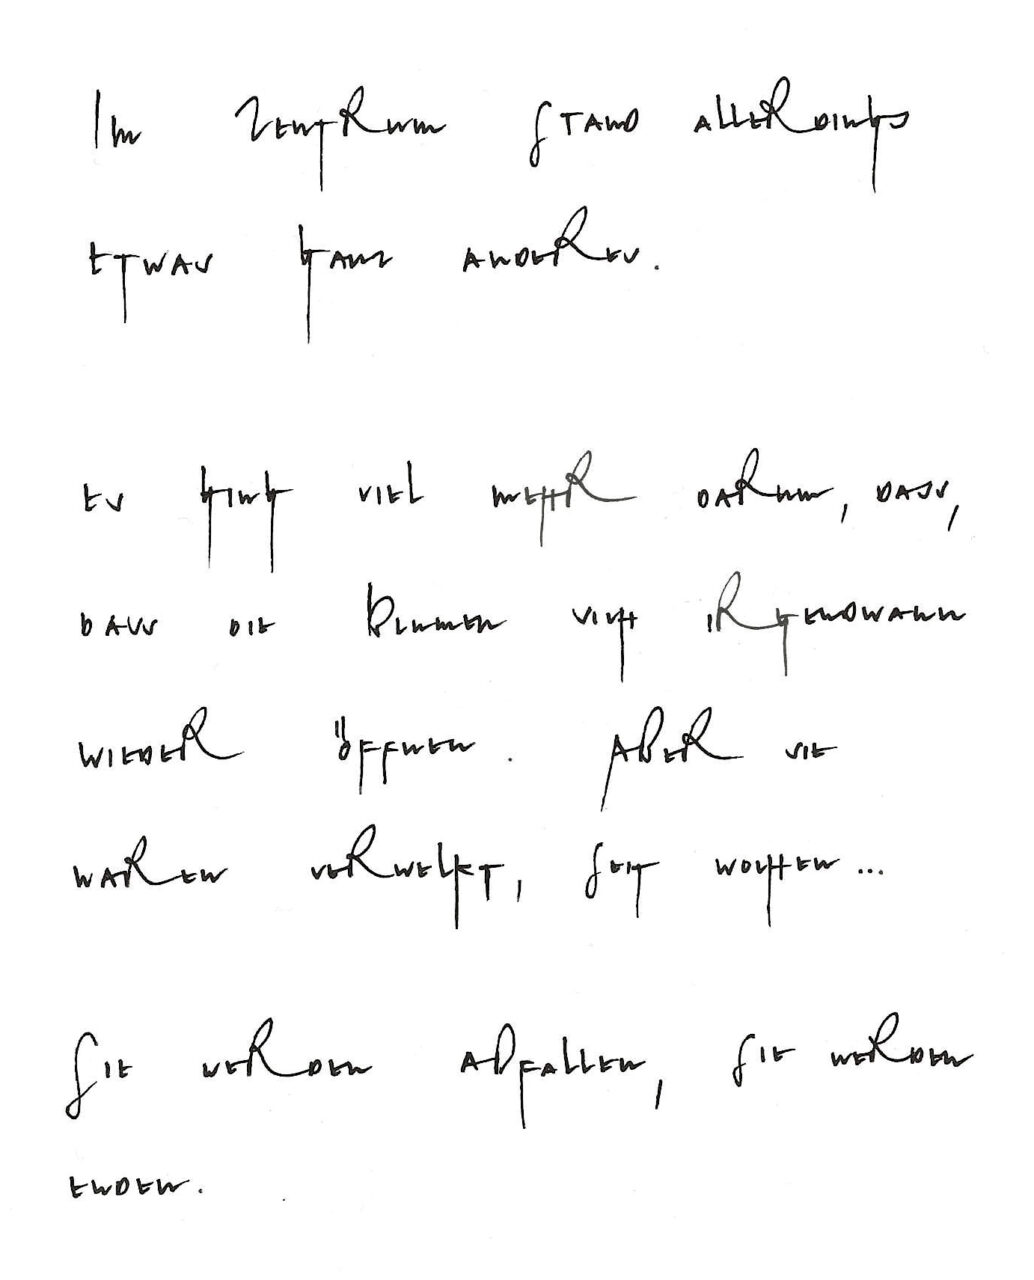 Im Zentrum stand allerdings
etwas ganz anderes.
es ging viel mehr darum, dass,
dass die Blumen sich irgendwann
wieder öffnen. Aber sie
waren verwelkt, seit Wochen...
Sie werden abfallen, sie werden
enden.